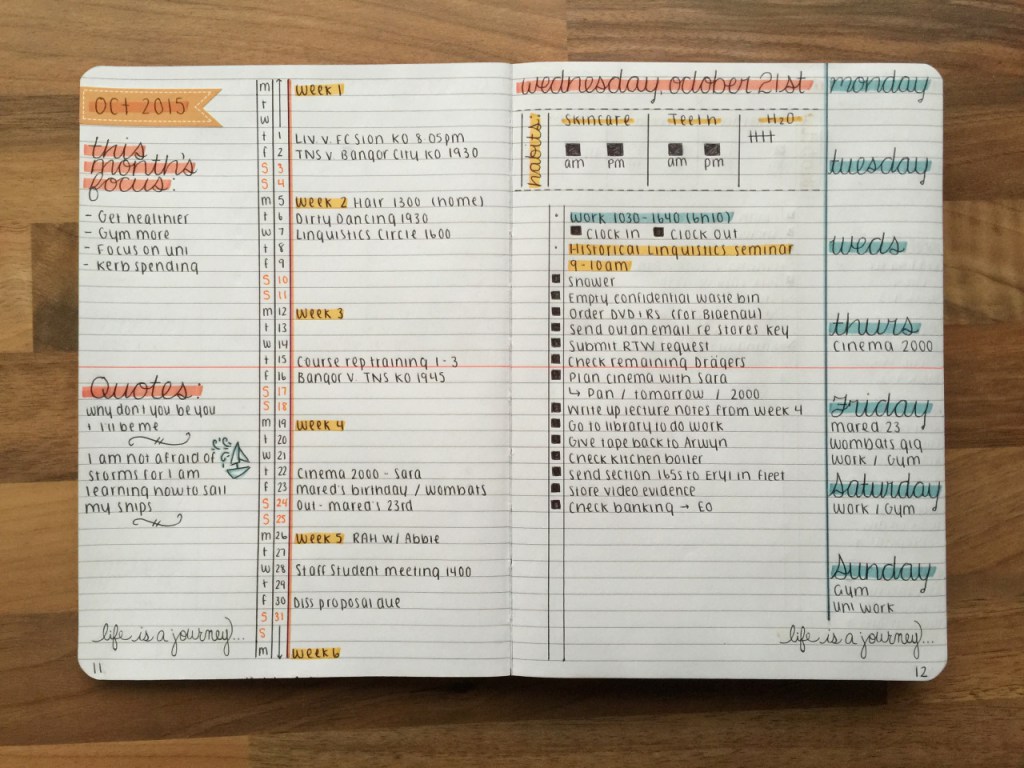 OCT 2015
this
month's
focus:
- Get healthier
- Gym more
- Focus on uni
- Kerb spending
Quotes:
why don't you be you
+ I'll be me
I am not afraid of
storms for I am
learning how to sail
my ships
life is a journey...
11
m Week 1
t
w
t 1 LIV V. FC SION KO 8.05pm
f 2 TNS V. Bangor City KO 1930
S 3
S 4
m 5 Week 2 Hair 1300 (home)
t 6 Dirty Dancing 1930
w 7 Linguistics Circle 1600
t 8
f 9
S 10
S 11
m 12 Week 3
t 13
w 14
t 15 Course rep training 1-3
f 16 Bangor V. TNS KO 1945
S 17
S 18
m 19 Week 4
t 20
w 21
t 22 Cinema 2000 - Sara
f 23 mared's birthday / Wombats
S 24 Out - mared's 23rd
S 25
m 26 Week 5 RAH W/ Abbie
t 27
w 28 Staff Student meeting 1400
t 29
f 30 Diss proposal due
S 31
S
m Week 6
wednesday, october 21st
habits:
Skincare Teeth H2O
am pm am pm
Work 1030 - 1640 (6h10)
Clock in Clock Out
Historical Linguistics seminar
9-10am
Shower
Empty confidential waste bin
Order DVD+Rs (for Blaenau)
Send out an email re stores key
Submit RTW request
Check remaining Drägers
Plan cinema with Sara
↳ Pan / tomorrow / 2000
Write up lecture notes from week 4
Go to library to do work
Give tape back to Arwyn
Check kitchen boiler
Send section 165s to Eryl in Fleet
Store video evidence
Check banking → EO
monday
tuesday
weds
thurs
Cinema 2000
Friday
mared 23
wombats gig
work / Gym
Saturday
work / Gym
Sunday
Gym
uni work
life is a journey...
12